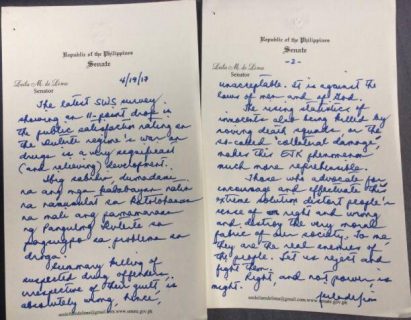 Republic of the Philippines
Senate
Leila M. de Lima
Senator
4/19/17
The latest SWS survey
showing an 11-point drop in
the public satisfaction rating on
the Duterte regime's war on
drugs is a very significant
(and relieving) development.
Ibig sabihin dumadami
na ang mga Pilipino
na namumulat sa katotohanan
na mali ang pamamaraan
ng Pangulong Duterte sa
pagsugpo sa problema sa
droga.
Summary killing of
suspected drug offenders,
irrespective of their guilt, is
absolutely wrong, hence,
senleilamdelima@gmail.com, www.senate.gov.ph
Republic of the Philippines
Senate
-2-
Leila M. de Lima
Senator
unacceptable. It is against the
laws of men and of God.
The rising statistics of
innocents also being killed by
roving death squads, or the
so-called "collateral damage,"
makes this EJK phenomenon
much more reprehensible.
Those who advocate for,
encourage and effectuate this
extreme solution distort people's
sense of right and wrong
and destroy the very moral
fabric of our society. To me,
they are the real enemies of
the people. Let us reject and
fight them.
Right, and not power, is
might.
senleilamdelima@gmail.com, www.senate.gov.ph